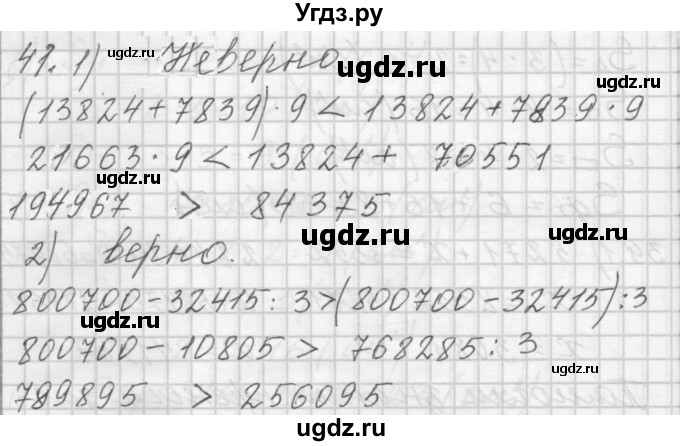 Угдз.ру
41. 1) Неверно
(13824+7839)·9 < 13824+7839·9
21663·9 < 13824+ 70551
194967 > 84375
2) верно.
800700-32415:3>(800700-32415):3
800700-10805 > 768285:3
789895 > 256095
ugdz.ru
ugdz.ru
ugdz.ru
ugdz.ru
ugdz.ru
ugdz.ru
ugdz.ru
ugdz.ru
ugdz.ru
ugdz.ru
ugdz.ru
ugdz.ru
ugdz.ru
ugdz.ru